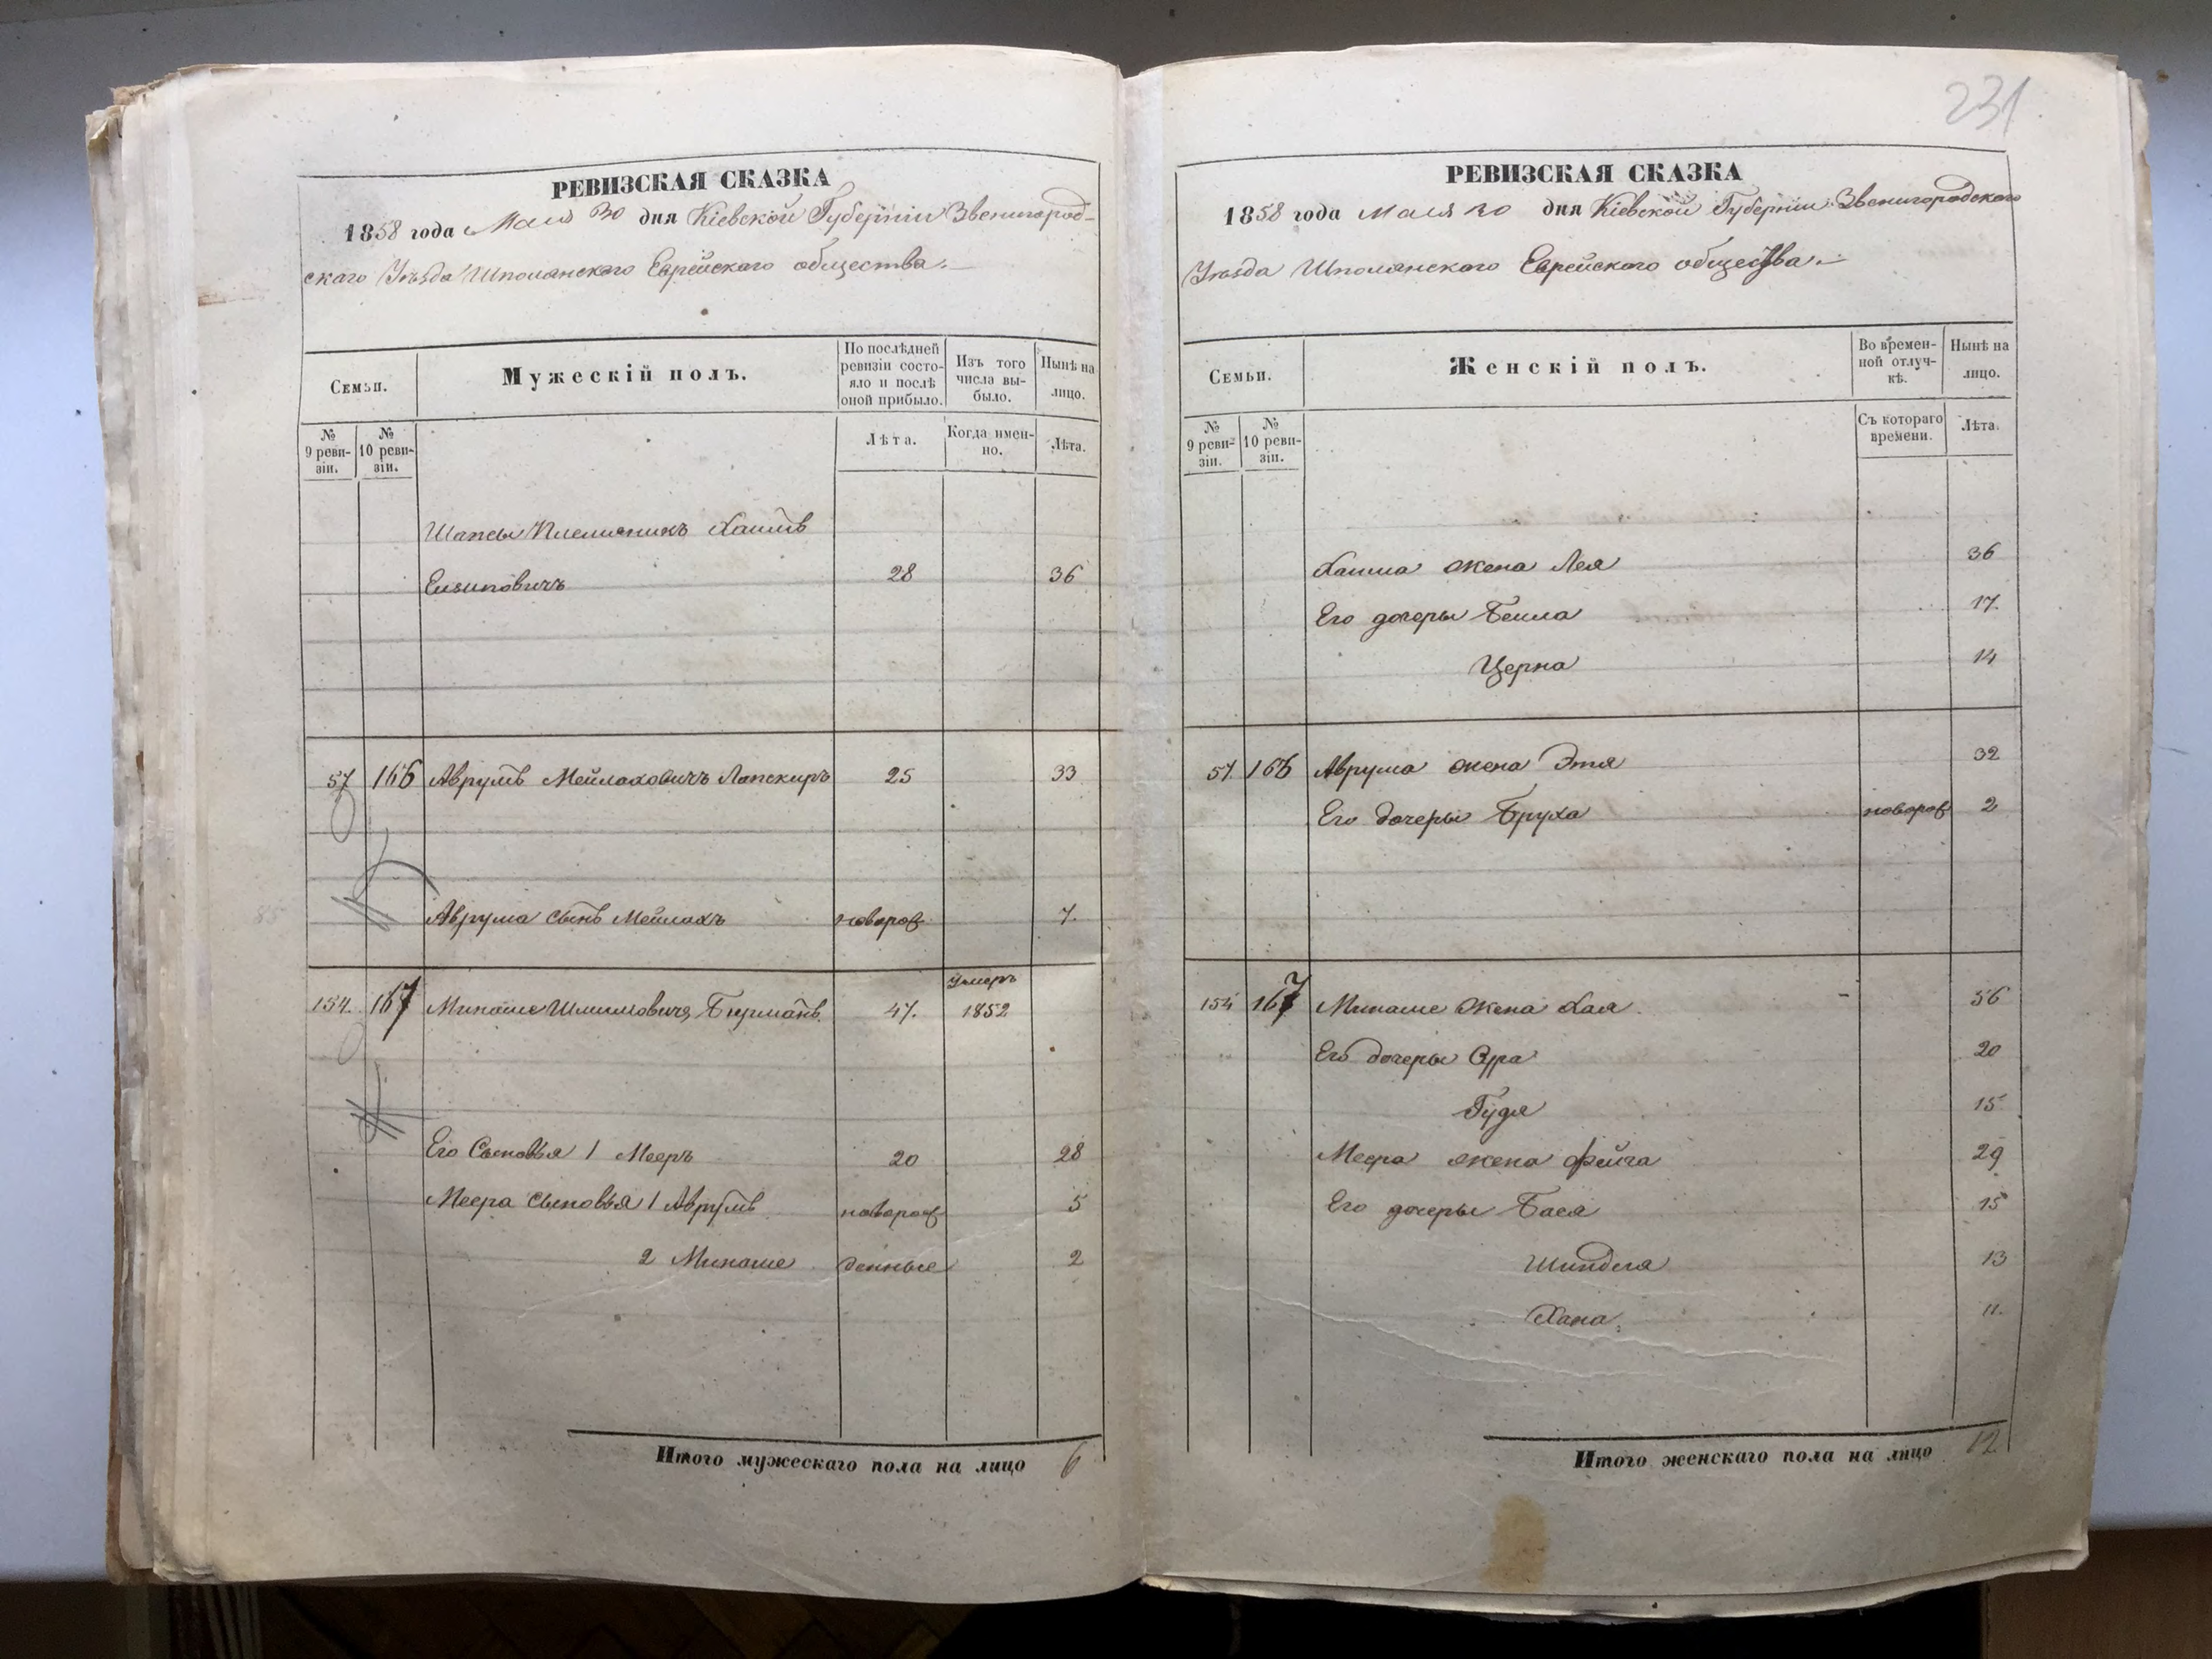 231
РЕВИЗСКАЯ СКАЗКА
1858 года Мая 30 дня Кіевской Губерніи Звенигород-
скаго Уѣзда Шполянскаго Еврейскаго общества.
Семьи.
Мужескій полъ.
По послѣдней ревизіи состо-яло и послѣ оной прибыло.
Изъ того числа вы-было.
Нынѣ на лицо.
№ 9 реви-зіи.
№ 10 реви-зіи.
Лѣта.
Когда имен-но.
Лѣта.
Шапсы Племяникъ Хаимъ
28 36
57 166 Аврумъ Мейлаховичъ Лапскиръ 25 33
Аврума сынъ Мейлахъ новорож 7.
умеръ
154. 167 Минаше Шлиомовичъ Бирманъ. 47. 1852
Его Сыновья 1 Мееръ 20 28
Меера сыновья 1 Аврумъ новорож 5
2 Минаше денные 2
Итого мужескаго пола на лицо 6
РЕВИЗСКАЯ СКАЗКА
1858 года мая 30 дня Кіевской Губерніи Звенигородскаго
Уѣзда Шполянскаго Еврейскаго общества.
Семьи.
Женскій полъ.
Во времен-ной отлуч-кѣ.
Нынѣ на лицо.
№ 9 реви-зіи.
№ 10 реви-зіи.
Съ котораго времени.
Лѣта.
Хаима жена Лея 36
Его дочеры Бейла 17.
Церна 14
57. 166 Аврума жена Этя 32
Его дочеры Бруха новорож 2
154 167 Минаше жена Хая. 56
Его дочеры 20
Гудя 15
Меера жена Фейга 29
Его дочеры Бася 15
Шиндля 13
Хана. 11.
Итого женскаго пола на лицо 12